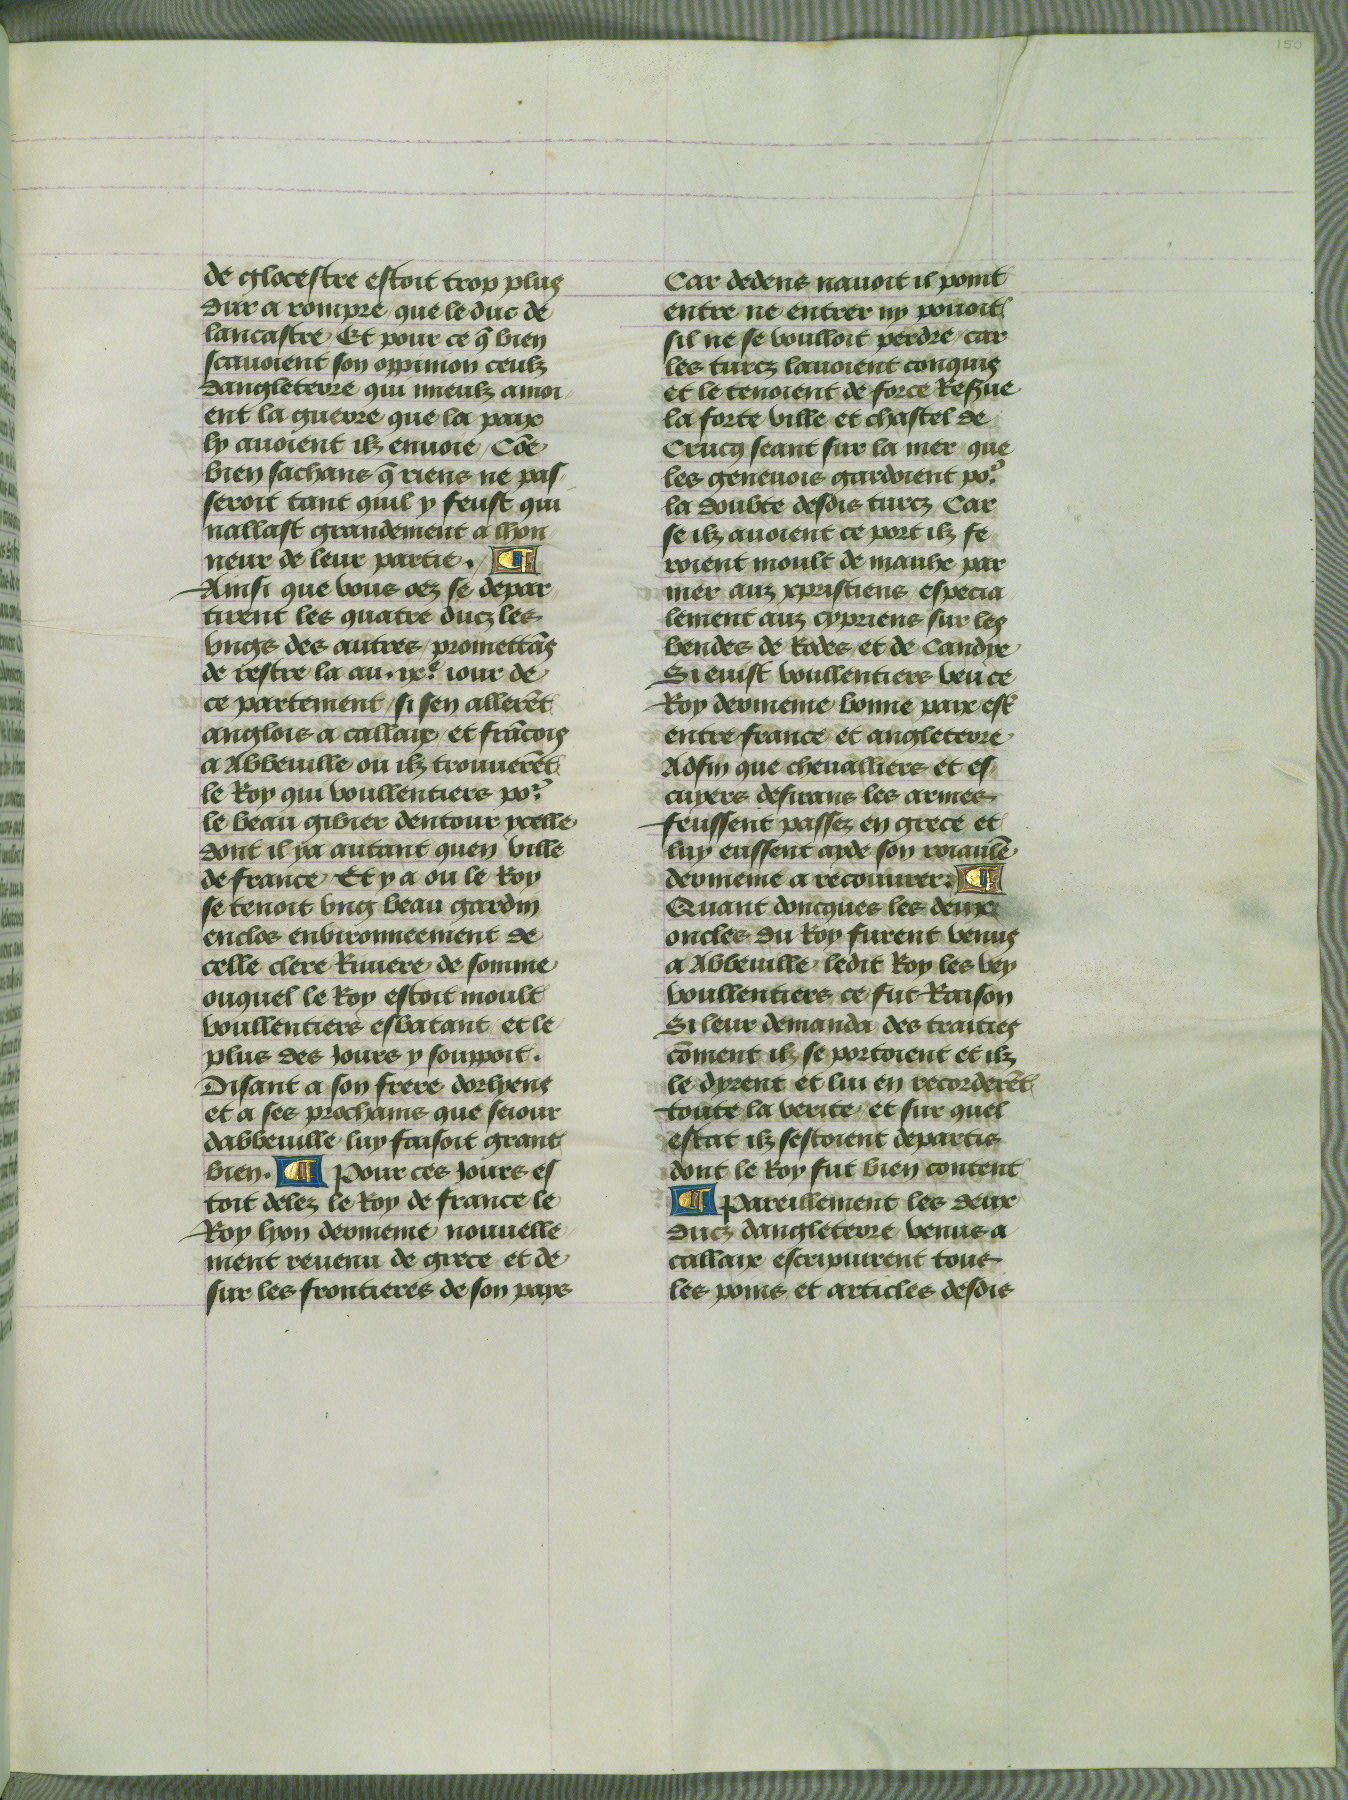 150
de glocestre estoit trop plus
dur a rompre que le duc de
lancastre Et pour ce q̃ bien
scauoient son oppinion ceulz
dangleterre qui mieulz amoi
ent la guerre que la paix
ly auoient ilz enuoie / Cõe
bien sachans q̃ riens ne pas
seroit tant quil y feust qui
nallast grandement a lhon
neur de leur partie . ¶
Ainsi que vous oez se depar
tirent les quatre ducz les
vngs des autres / promettãs
de restre la au . ixe. iour de
ce partement / si sen allerẽt
anglois a callaix et frãcois
a Abbeuille ou ilz trouuerẽt
le Roy qui voullentiers por
le beau gibier dentour ycelle
dont il ya autant quen ville
de france Et y a ou le Roy
se tenoit vng beau gardin
enclos environneement de
celle clere Riuiere de somme
ouquel le Roy estoit moult
voullentiers esbatant et le
plus des Jours y souppoit .
Disant a son frere dorlyens
et a ses prochains que seiour
dabbeuille luy faisoit grant
bien . ¶ Pour ces Jours es
toit delez le Roy de france le
Roy lyon dermenie nouuelle
ment reuenu de grece et de
sur les frontieres de son pays
Car dedens nauoit il point
entre ne entrer ny pouoit
sil ne se voulloit perdre car
les turcz lauoient conquis
et le tenoient de force Resgue
la forte ville et chastel de
Crucq seant sur la mer que
les geneuois gardoient por
la doubte desdis turcz Car
se ilz auoient ce port ilz fe
roient moult de maulx par
mer auz xpristiens especia
lement auz cypriens sur les
bendes de Rodes et de Candye
Si euist voullentiers veu ce
Roy dermenie bonne paix est
entre france et angleterre
Adfin que chevalliers et es
cuyers desirans les armes
feussent passez en grece et
luy eussent ayde son roiaulẽ
dermenie a recouurer . ¶
Quant doncques les deux
oncles du Roy furent venus
a Abbeuille ledit Roy les vey
voullentiers ce fut Raison
Si leur demanda des traities
cõment ilz se portoient et ilz
le dyrent et lui en recorderẽt
toute la verite et sur quel
estat ilz sestoient departis
dont le Roy fut bien content
¶ Pareillement les deux
ducz dangleterre venus a
callaix escripuirent tous
les poins et articles desdis